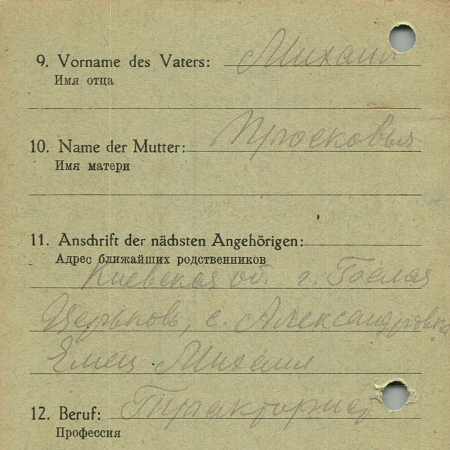 9. Vorname des Vaters: Михаил
Имя отца
10. Name der Mutter: Просковья
Имя матери
11. Anschrift der nächsten Angehörigen:
Адрес ближайших родственников
Киевская об. г. Белая
Церьковь, с. Александровка
Емец Михаил
12. Beruf: Тракторист
Профессия